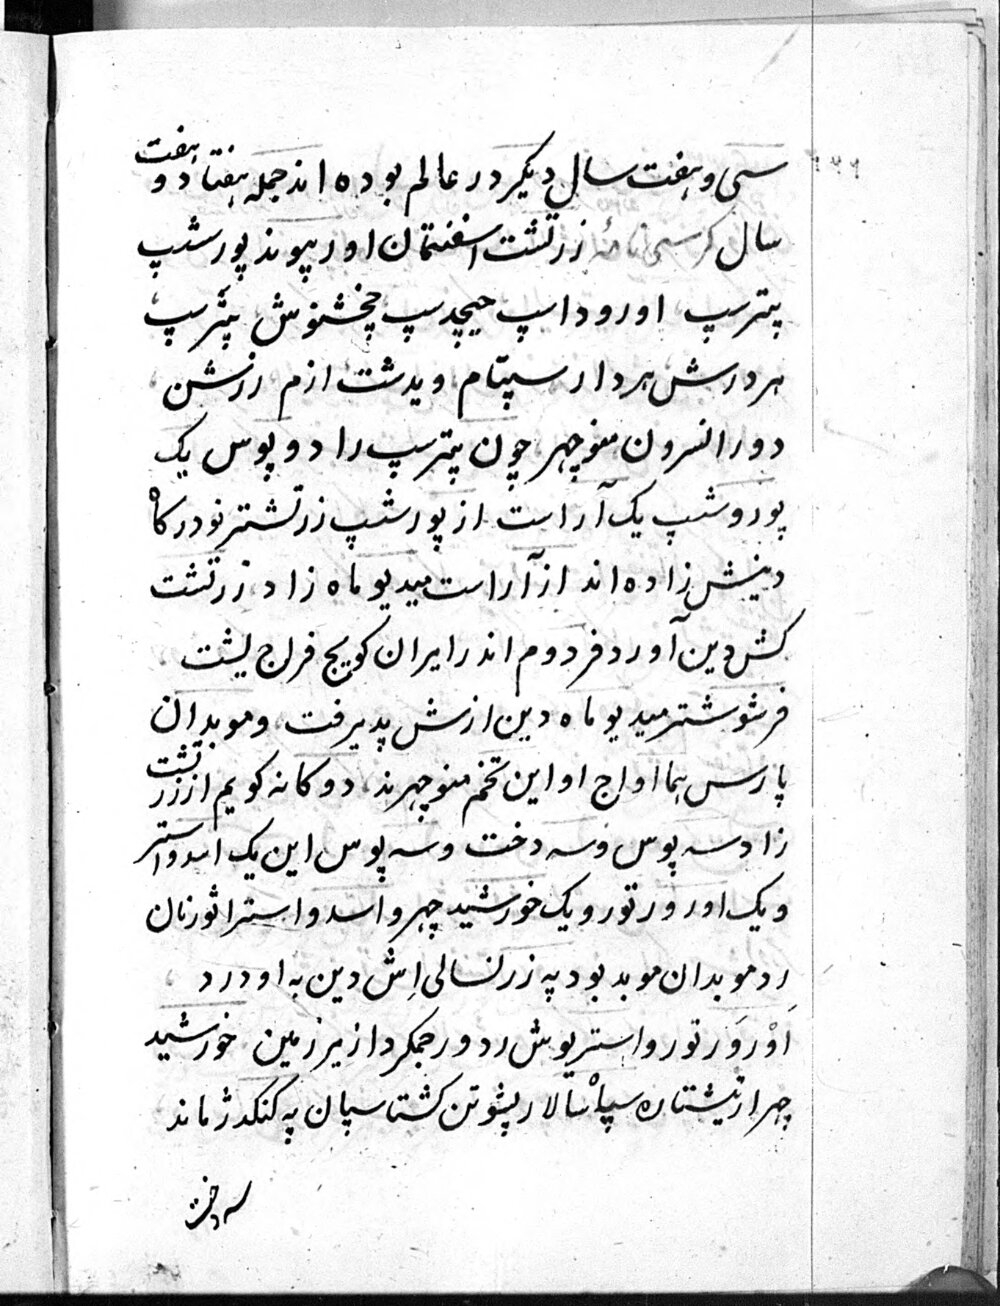 سی و هفت سال دیکر در عالم بوده اند جمله هفتاد و هفت
سال کرسی نامهٔ زرتشت اسفنتمان اور پیوند پورشپ
پیترسپ اوروداسپ هیچدسپ چخشنوش پیترسپ
هردرش هردار سپیتام ویدشت ازم رزشن
دورانسرون منوچهر چون پیترسپ را دو پوس یک
پوروشپ یک آراست از پورشپ زرتشتر نودر کاه
دینش زاده اند از آراست میدیوماه زاد زرتشت
کش دین آورد فردوم اندر ایران کویج فراج یشت
فرشوشتر میدیوماه دین ازش پدیرفت و موبدان
پارس هما اواج او این تخم منوچهرند دوکانه کویم از زرتشت
زاد سه پوس وسه دخت وسه پوس این یک اسدواستر
و یک اورورتور و یک خورشید چهر و اسدواستر اثورنان
رد موبدان موبد بود په زرنسالی اش دین به او درد
اورورتور واستریوش رد ور جمکرد ازیر زمین خورشید
چهر ارتیشتاره سپاه سالار پشوتن کشتاسپان په کنکدژ ماند
سه دخت